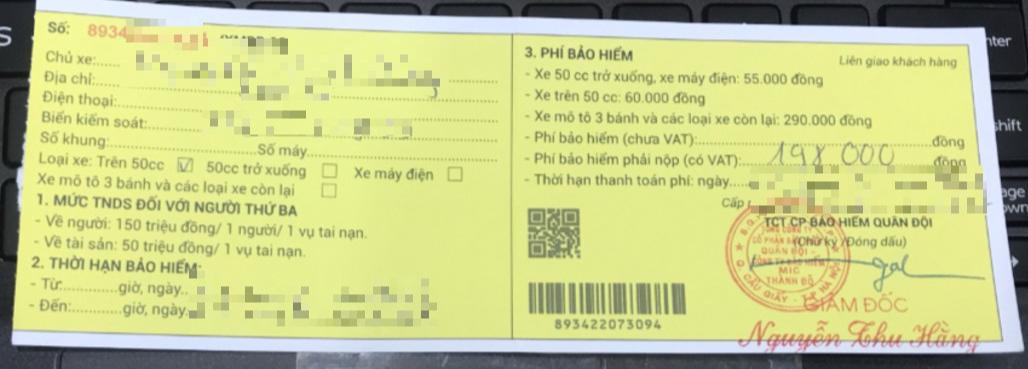 Số: 8934
Chủ xe:
Địa chỉ:
Điện thoại:
Biển kiểm soát:
Số khung: Số máy
Loại xe: Trên 50cc ☑ 50cc trở xuống ☐ Xe máy điện ☐
Xe mô tô 3 bánh và các loại xe còn lại ☐
1. MỨC TNDS ĐỐI VỚI NGƯỜI THỨ BA
- Về người: 150 triệu đồng/ 1 người/ 1 vụ tai nạn.
- Về tài sản: 50 triệu đồng/ 1 vụ tai nạn.
2. THỜI HẠN BẢO HIỂM:
- Từ:............giờ, ngày..
- Đến:............giờ, ngày.
3. PHÍ BẢO HIỂM
Liên giao khách hàng
- Xe 50 cc trở xuống, xe máy điện: 55.000 đồng
- Xe trên 50 cc: 60.000 đồng
- Xe mô tô 3 bánh và các loại xe còn lại: 290.000 đồng
- Phí bảo hiểm (chưa VAT): đồng
- Phí bảo hiểm phải nộp (có VAT): 198 000 đồng
- Thời hạn thanh toán phí: ngày
Cấp
TCT CP BẢO HIỂM QUÂN ĐỘI
(Chữ ký /Đóng dấu)
MIC
THÀNH ĐÔ
GIÁM ĐỐC
Nguyễn Thu Hằng
893422073094
enter
shift